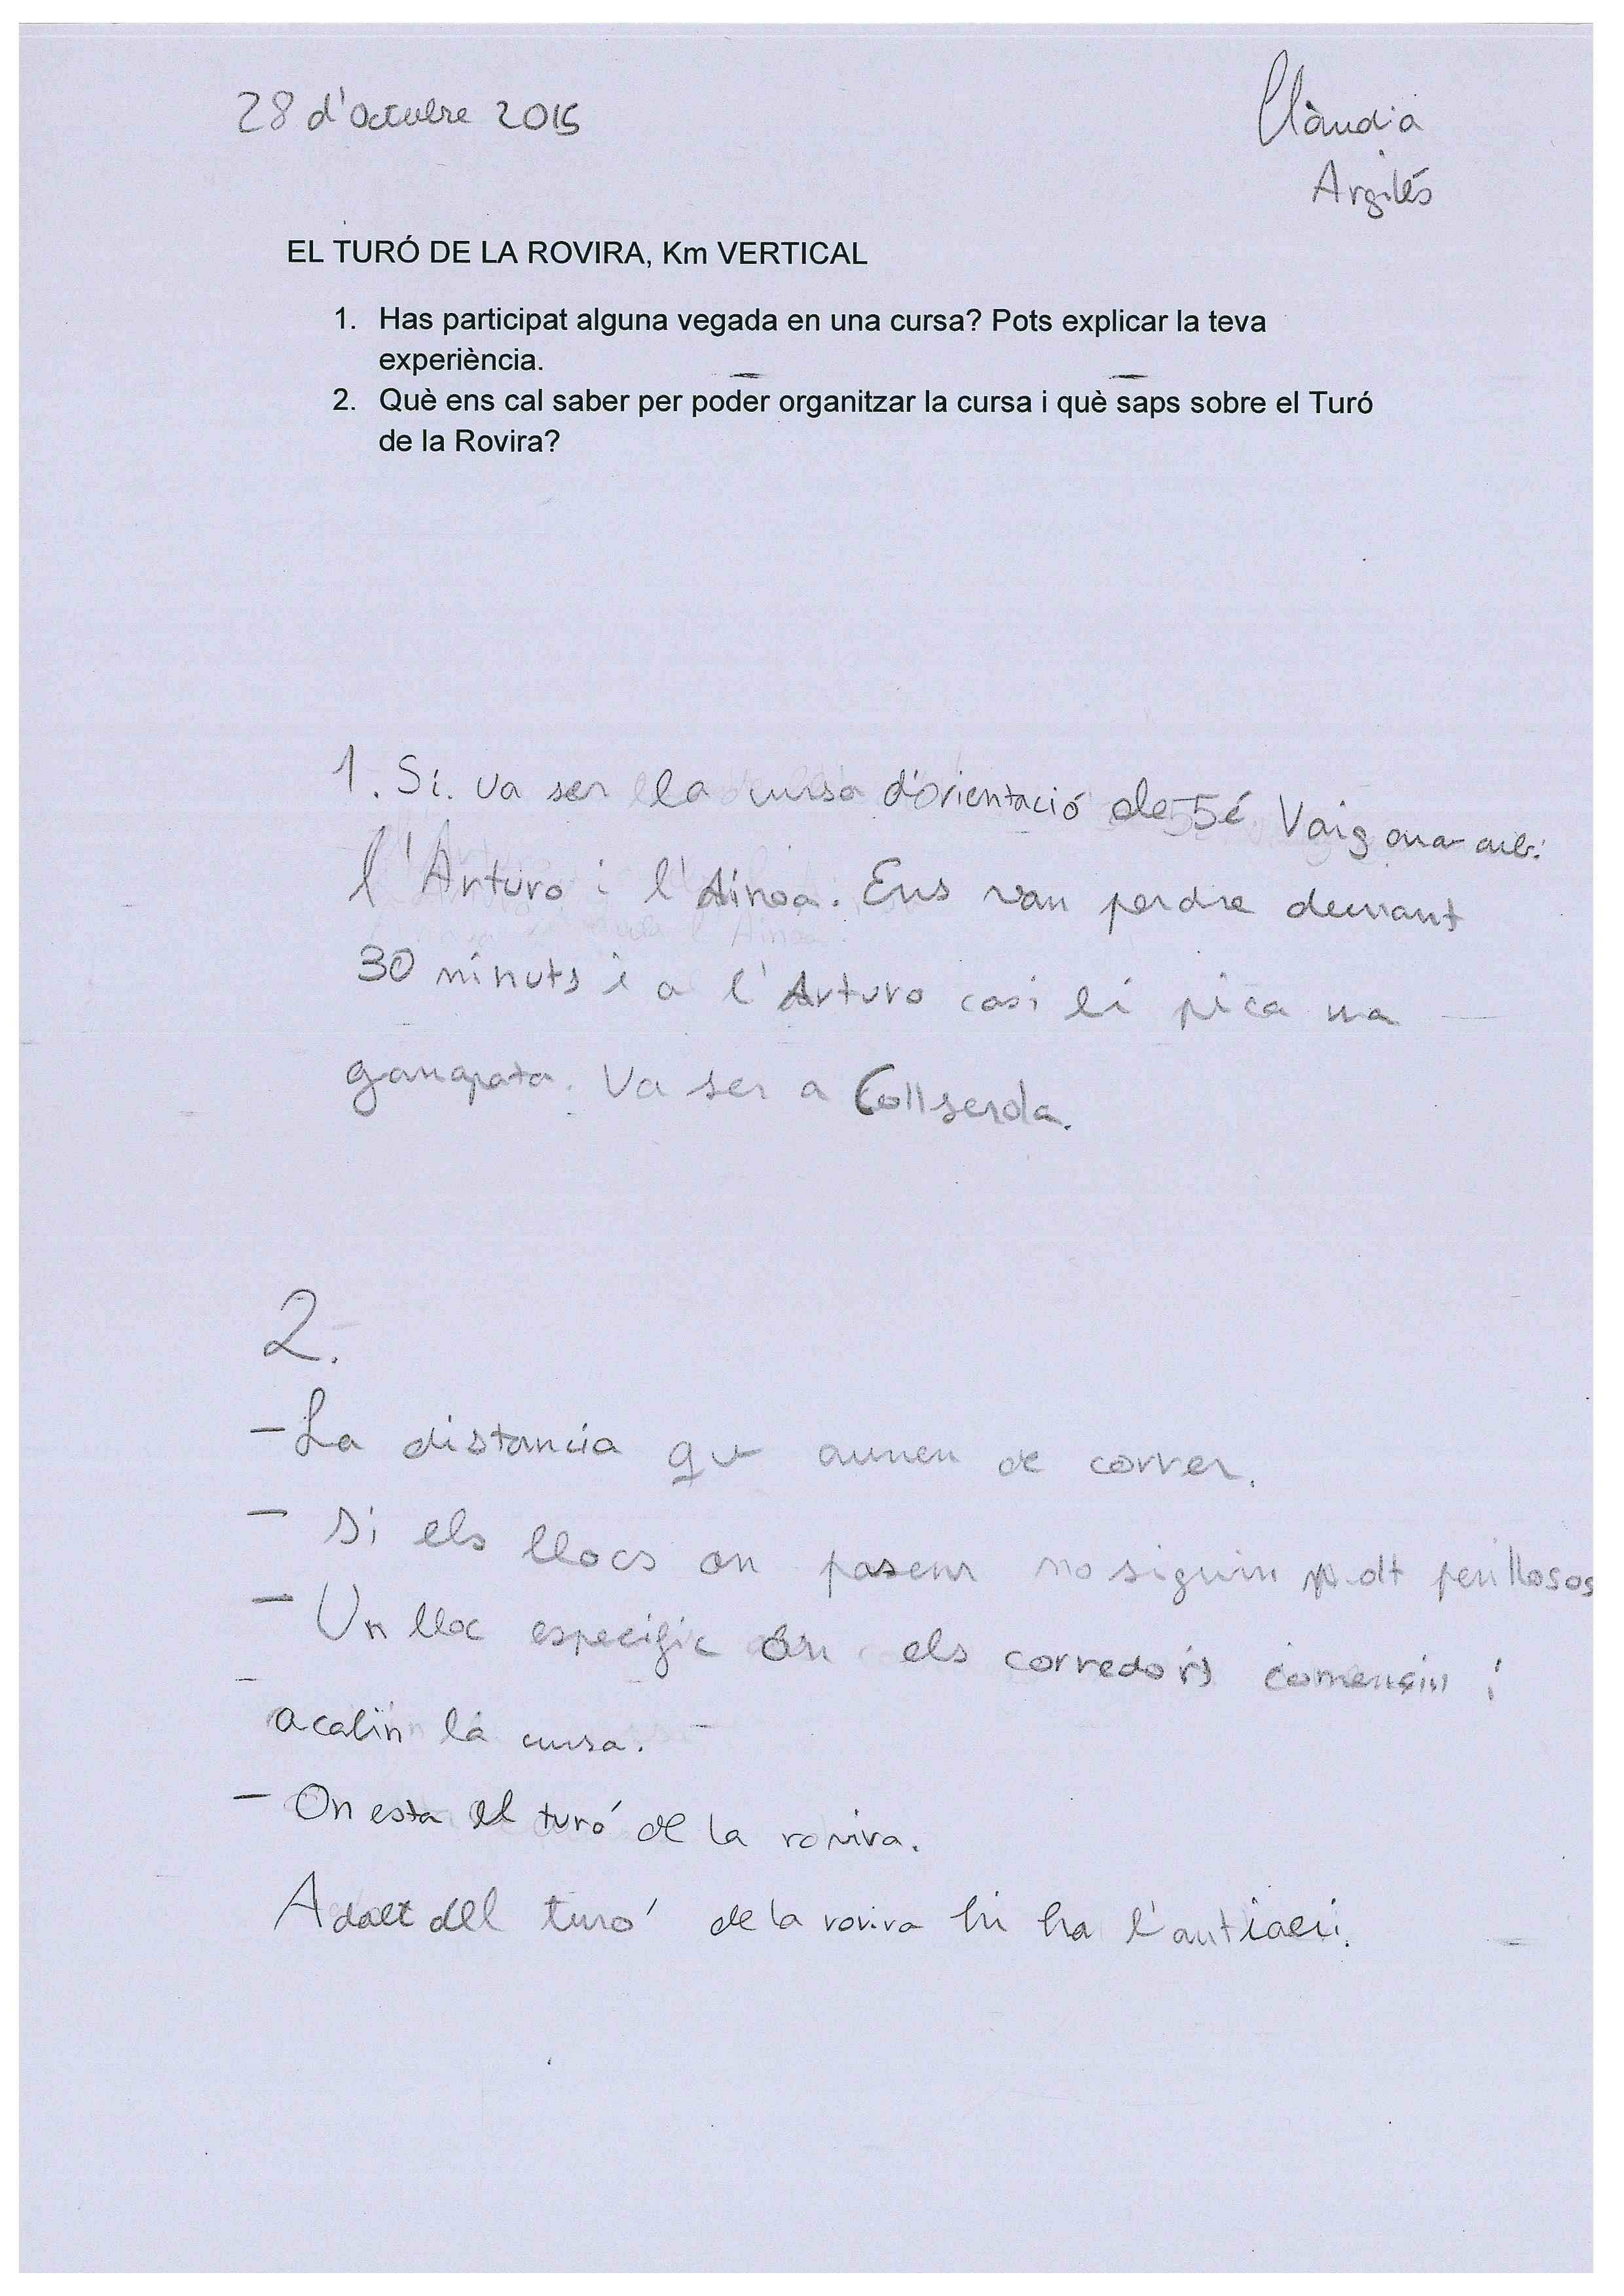 28 d'octubre 2015
Clàudia
Argilés
EL TURÓ DE LA ROVIRA, Km VERTICAL
1. Has participat alguna vegada en una cursa? Pots explicar la teva
experiència.
2. Què ens cal saber per poder organitzar la cursa i què saps sobre el Turó
de la Rovira?
1. Si. Va ser la cursa d'orientació de 5é Vaig anar
l'Arturo i l'Ainoa. Ens van perdre durant
30 minuts i a l'Arturo casi li pica una
garrapata. Va ser a Collserola.
2.
- La distancia que aurien de correr.
- Si els llocs on pasem no siguin molt perillosos
- Un lloc especific on els corredors comencin i
acabin la cursa.
- On esta el turó de la rovira.
A dalt del turó de la rovira hi ha l'antiaeri.